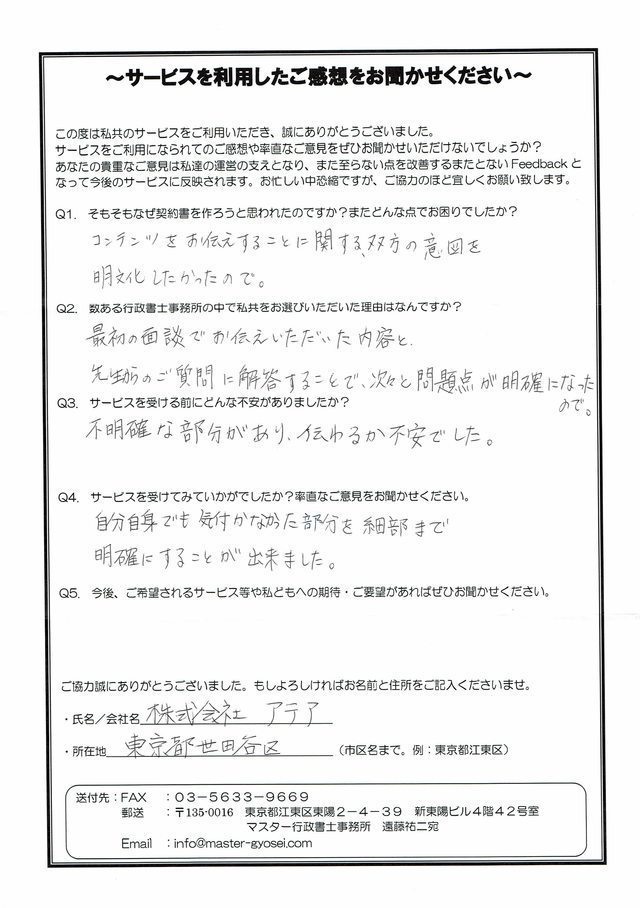 ～サービスを利用したご感想をお聞かせください～
この度は私共のサービスをご利用いただき、誠にありがとうございました。
サービスをご利用になられてのご感想や率直なご意見をぜひお聞かせいただけないでしょうか？
あなたの貴重なご意見は私達の運営の支えとなり、また至らない点を改善するまたとない Feedback と
なって今後のサービスに反映されます。お忙しい中恐縮ですが、ご協力のほど宜しくお願い致します。
Q1. そもそもなぜ契約書を作ろうと思われたのですか？またどんな点でお困りでしたか？
コンテンツをお伝えすることに関する、双方の意図を
明文化したかったので。
Q2. 数ある行政書士事務所の中で私共をお選びいただいた理由はなんですか？
最初の面談でお伝えいただいた内容と、
先生からのご質問に解答することで、次々と問題点が明確になった
ので。
Q3. サービスを受ける前にどんな不安がありましたか？
不明確な部分があり、伝わるか不安でした。
Q4. サービスを受けてみていかがでしたか？率直なご意見をお聞かせください。
自分自身でも気付かなかった部分を細部まで
明確にすることが出来ました。
Q5. 今後、ご希望されるサービス等や私どもへの期待・ご要望があればぜひお聞かせください。
ご協力誠にありがとうございました。もしよろしければお名前と住所をご記入くださいませ。
・氏名／会社名 株式会社 アテア
・所在地 東京都世田谷区 （市区名まで。例：東京都江東区）
送付先：FAX ：03-5633-9669
郵送 ：〒135-0016 東京都江東区東陽2-4-39 新東陽ビル4階42号室
マスター行政書士事務所 遠藤祐二宛
Email ：info@master-gyosei.com